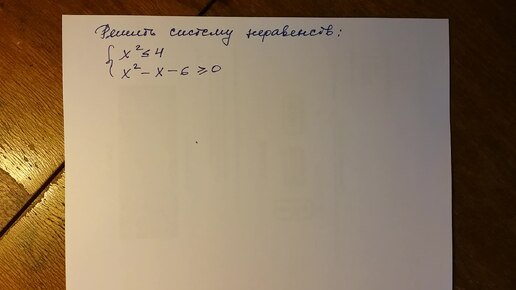 Решить систему неравенств:
{ x² ≤ 4
x² - x - 6 ≥ 0